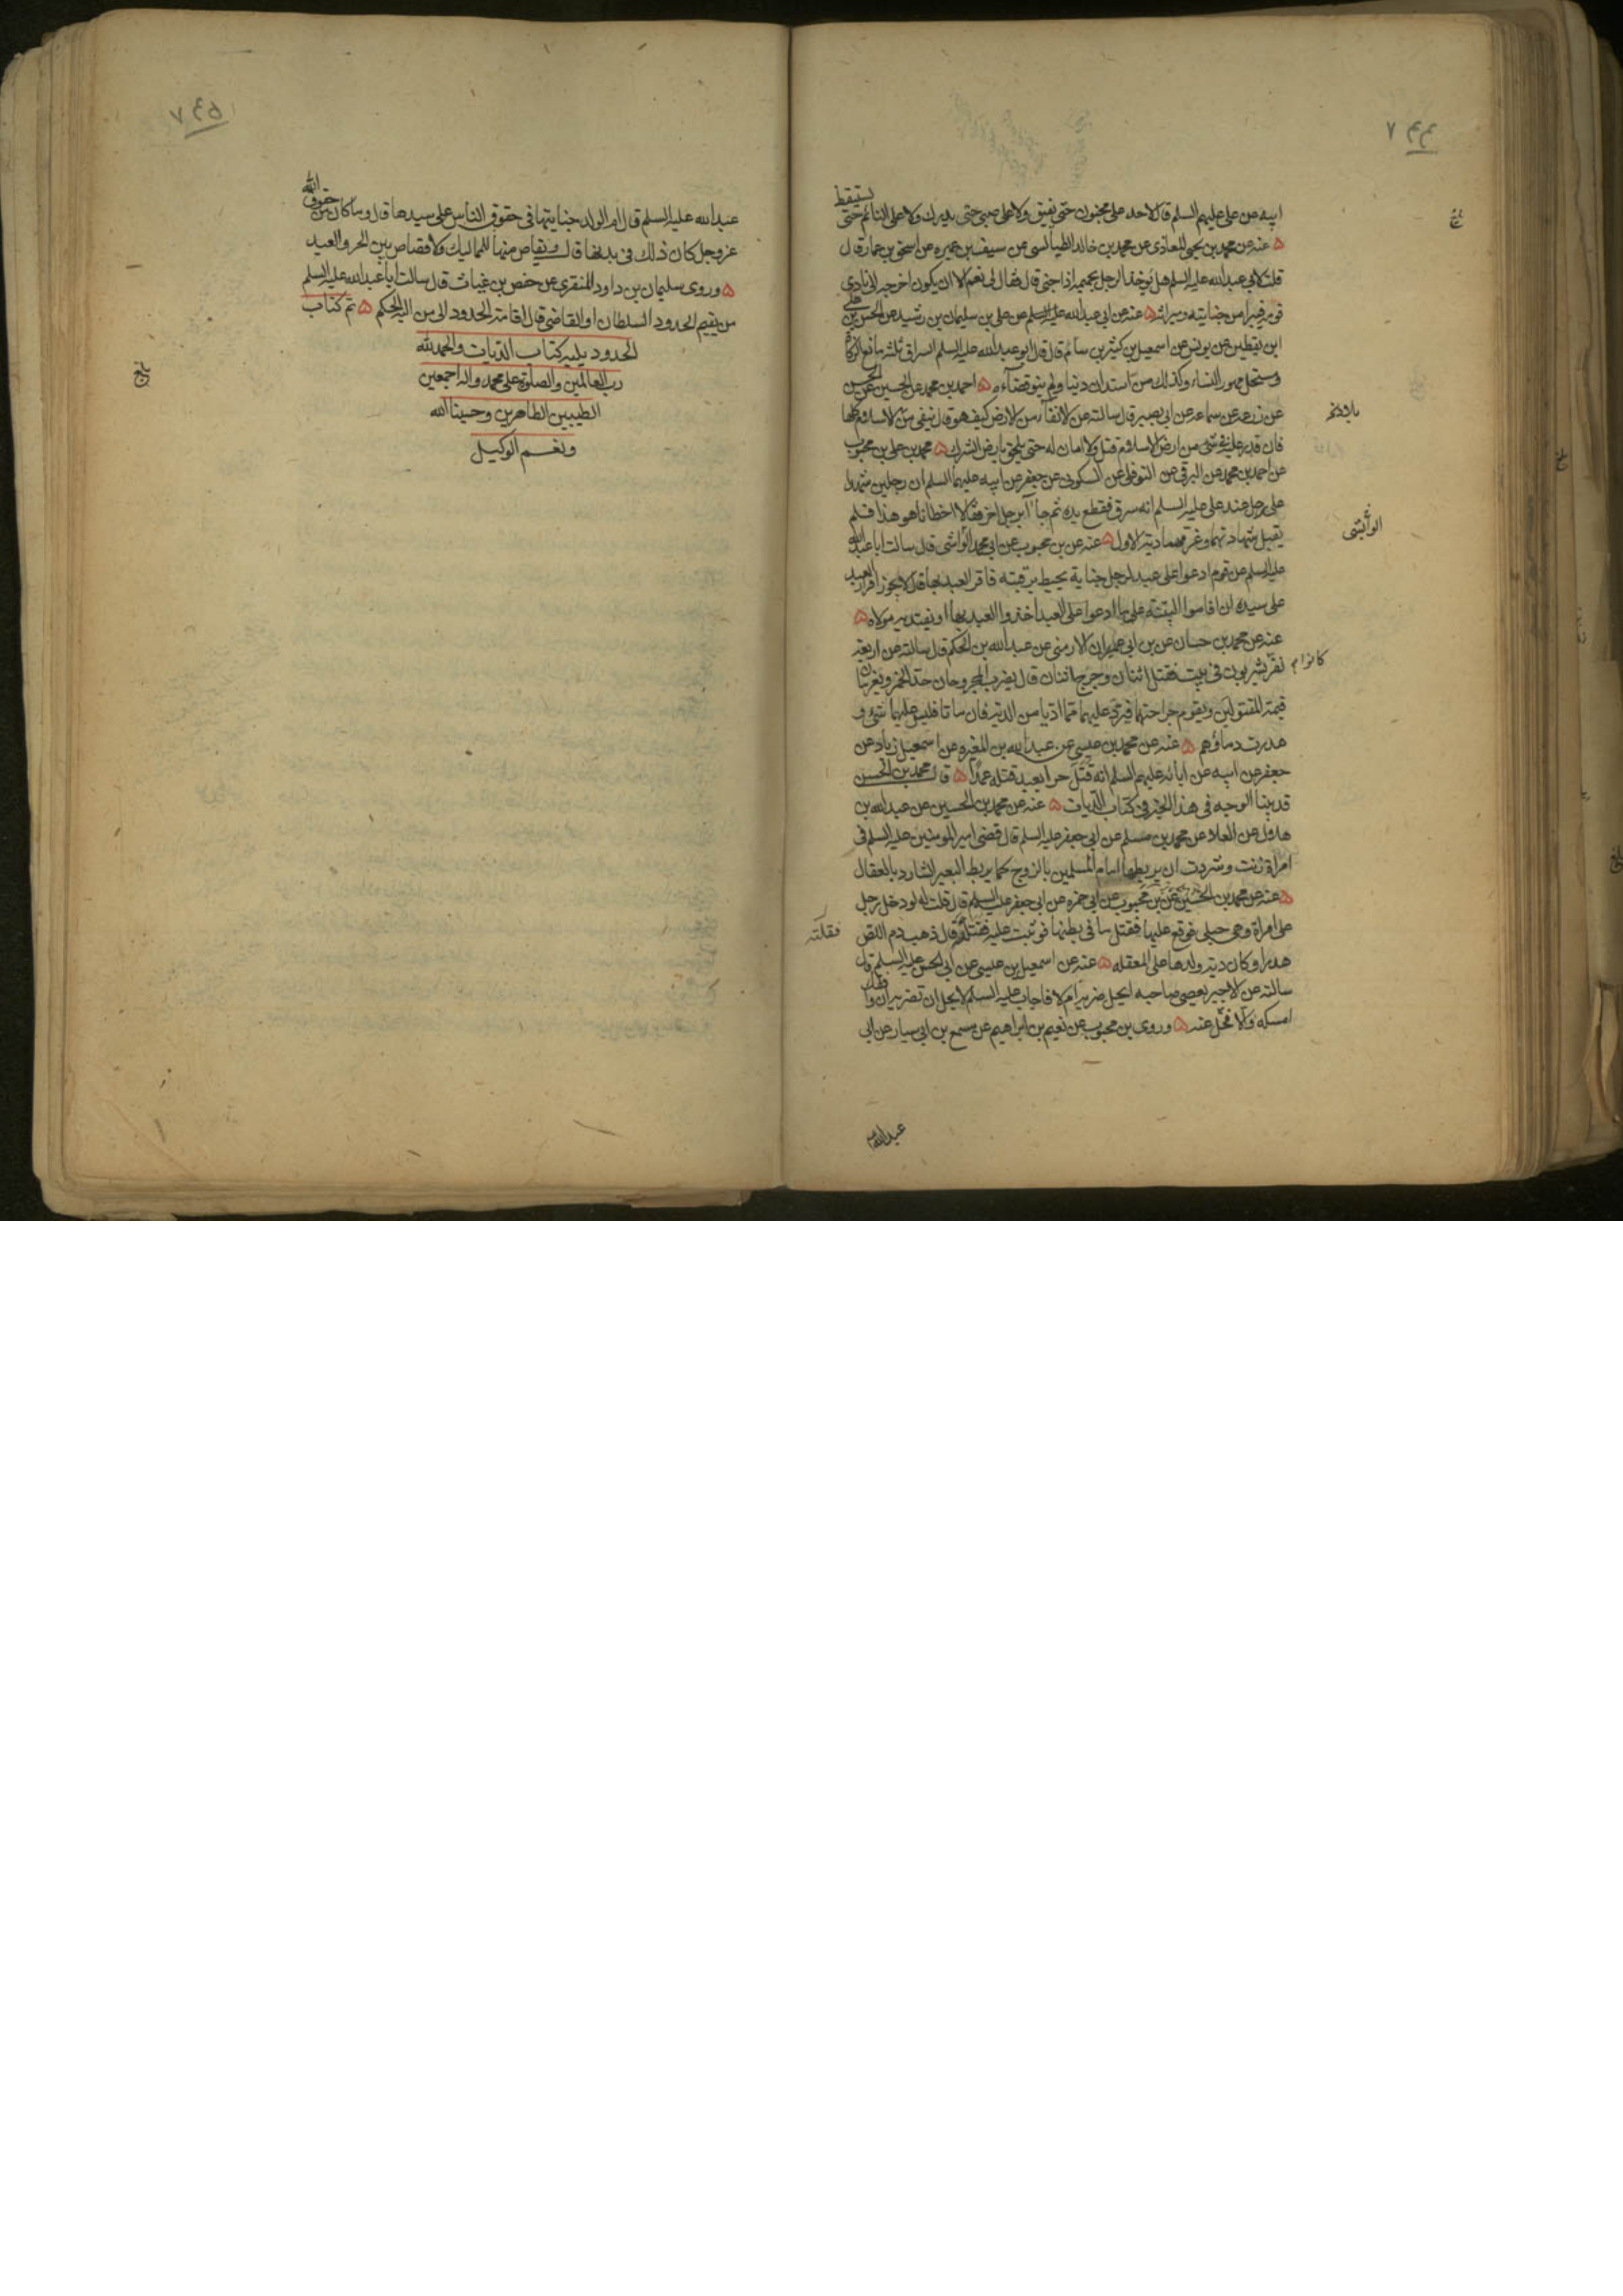 ٧٤٤
ابيه عن علي عليهم السلم قال لا حد على مجنون حتى يفيق ولا على صبي حتى يدرك ولا على النائم حتى يستيقظ
ه عنه عن محمد بن يحيى المعاذي عن محمد بن خالد الطيالسي عن سيف بن عميره عن اسحق بن عمار قال
قلت لابي عبدالله عليه السلم هل يؤخذ الرجل بحميمه اذا جنى قال فقال لي نعم الا ان يكون اخرجه الى نادي
قومه فتبرأ من جنايته وميراثه ه عنه عن ابي عبدالله عليه السلم عن علي بن سليمان بن رشيد عن الحسن بن علي
ابن يقطين عن يونس عن اسمعيل بن كثير بن سام قال قال ابو عبدالله عليه السلم السراق ثلثه مانع الزكاة
ومستحل مهور النساء وكذلك من استدان دينا ولم ينو قضاءه ه احمد بن محمد عن الحسين عن الحسن
عن زرعه عن سماعه عن ابي بصير قال سالته عن الانفاء من الارض كيف هو قال ينفى من بلاد الاسلام كلها
فان قدر عليه في شي من ارض الاسلام قتل ولا امان له حتى يلحق بارض الشرك ه محمد بن علي بن محبوب
عن احمد بن محمد عن البرقي عن النوفلي عن السكوني عن جعفر عن ابيه عليهما السلم ان رجلين شهدا
على رجل عند علي عليه السلم انه سرق فقطع يده ثم جاآ برجل اخر فقالا اخطانا هو هذا فلم
يقبل شهادتهما وغرمهما دية الاول ه عنه عن بن محبوب عن ابي محمد الوابشي قال سالت ابا عبدالله
عليه السلم عن قوم ادعوا على عبد لرجل جناية يحيط برقبته فاقر العبد بها قال لا يجوز اقرار العبد
على سيده ان اقاموا البينة على ما ادعوا على العبد اخذوا العبد بها او يفتديه مولاه ه
عنه عن محمد بن حسان عن بن ابي عمران الارمني عن عبدالله بن الحكم قال سالته عن اربعه
نفر كانوا يشربون في بيت فقتل اثنان وجرح اثنان قال يضرب المجروحان حد الخمر ويغرمان
قيمة المقتولين ويقوم جراحتهما فيرد عليهما مما اديا من الدية فان ماتا فليس عليهما شيء و
هدرت دماؤهم ه عنه عن محمد بن عيسى عن عبدالله بن المغيره عن اسمعيل زياد عن
جعفر عن ابيه عن ابائه عليهم السلم انه قتل حرا بعبد قتله عمدا ه قال محمد بن الحسن
قد بينا الوجه في هذا الخبر في كتاب الديات ه عنه عن محمد بن الحسين عن عبدالله بن
هلال عن العلاء عن محمد بن مسلم عن ابي جعفر عليه السلم قال قضى امير المومنين عليه السلم في
امراة زنت وشردت ان يربطها امام المسلمين بالزوج كما يربط البعير الشارد بالعقال
ه عنه عن محمد بن الحسين عن بن محبوب عن ابي حمزه عن ابي جعفر عليه السلم قال قلت له لو دخل رجل
على امراة وهي حبلى فوقع عليها فقتل ما في بطنها فوثبت عليه فقتلته قال ذهب دم اللص
هدرا وكان دية ولدها على المعقله ه عنه عن اسمعيل بن عيسى عن ابي الحسن عليه السلم قال
سالته عن الاجير يعصي صاحبه ايحل ضربه ام لا فاجاب عليه السلم لا يحل ان تضربه ان وافقك
امسكه والا فخل عنه ه وروى بن محبوب عن نعيم بن ابراهيم عن مسمع بن ابي سيار عن ابي
عبدالله
الوابشي
كانوا
فقتلته
٧٤٥
عبدالله عليه السلم قال ام الولد جنايتها في حقوق الناس على سيدها قال وما كان من حقوق الله
عز وجل كان ذلك في بدنها قال ويقاص منها للمماليك ولا قصاص بين الحر والعبد
ه وروى سليمان بن داود المنقري عن حفص بن غياث قال سالت ابا عبدالله عليه السلم
من يقيم الحدود السلطان او القاضي قال اقامة الحدود الى من اليه الحكم ه تم كتاب
الحدود يليه كتاب الديات والحمدلله
رب العالمين والصلوة على محمد واله اجمعين
الطيبين الطاهرين وحسبنا الله
ونعم الوكيل
بلغ